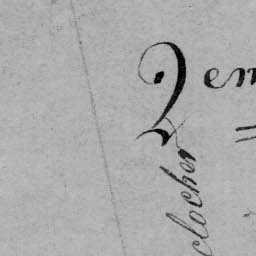 Dem
clocher